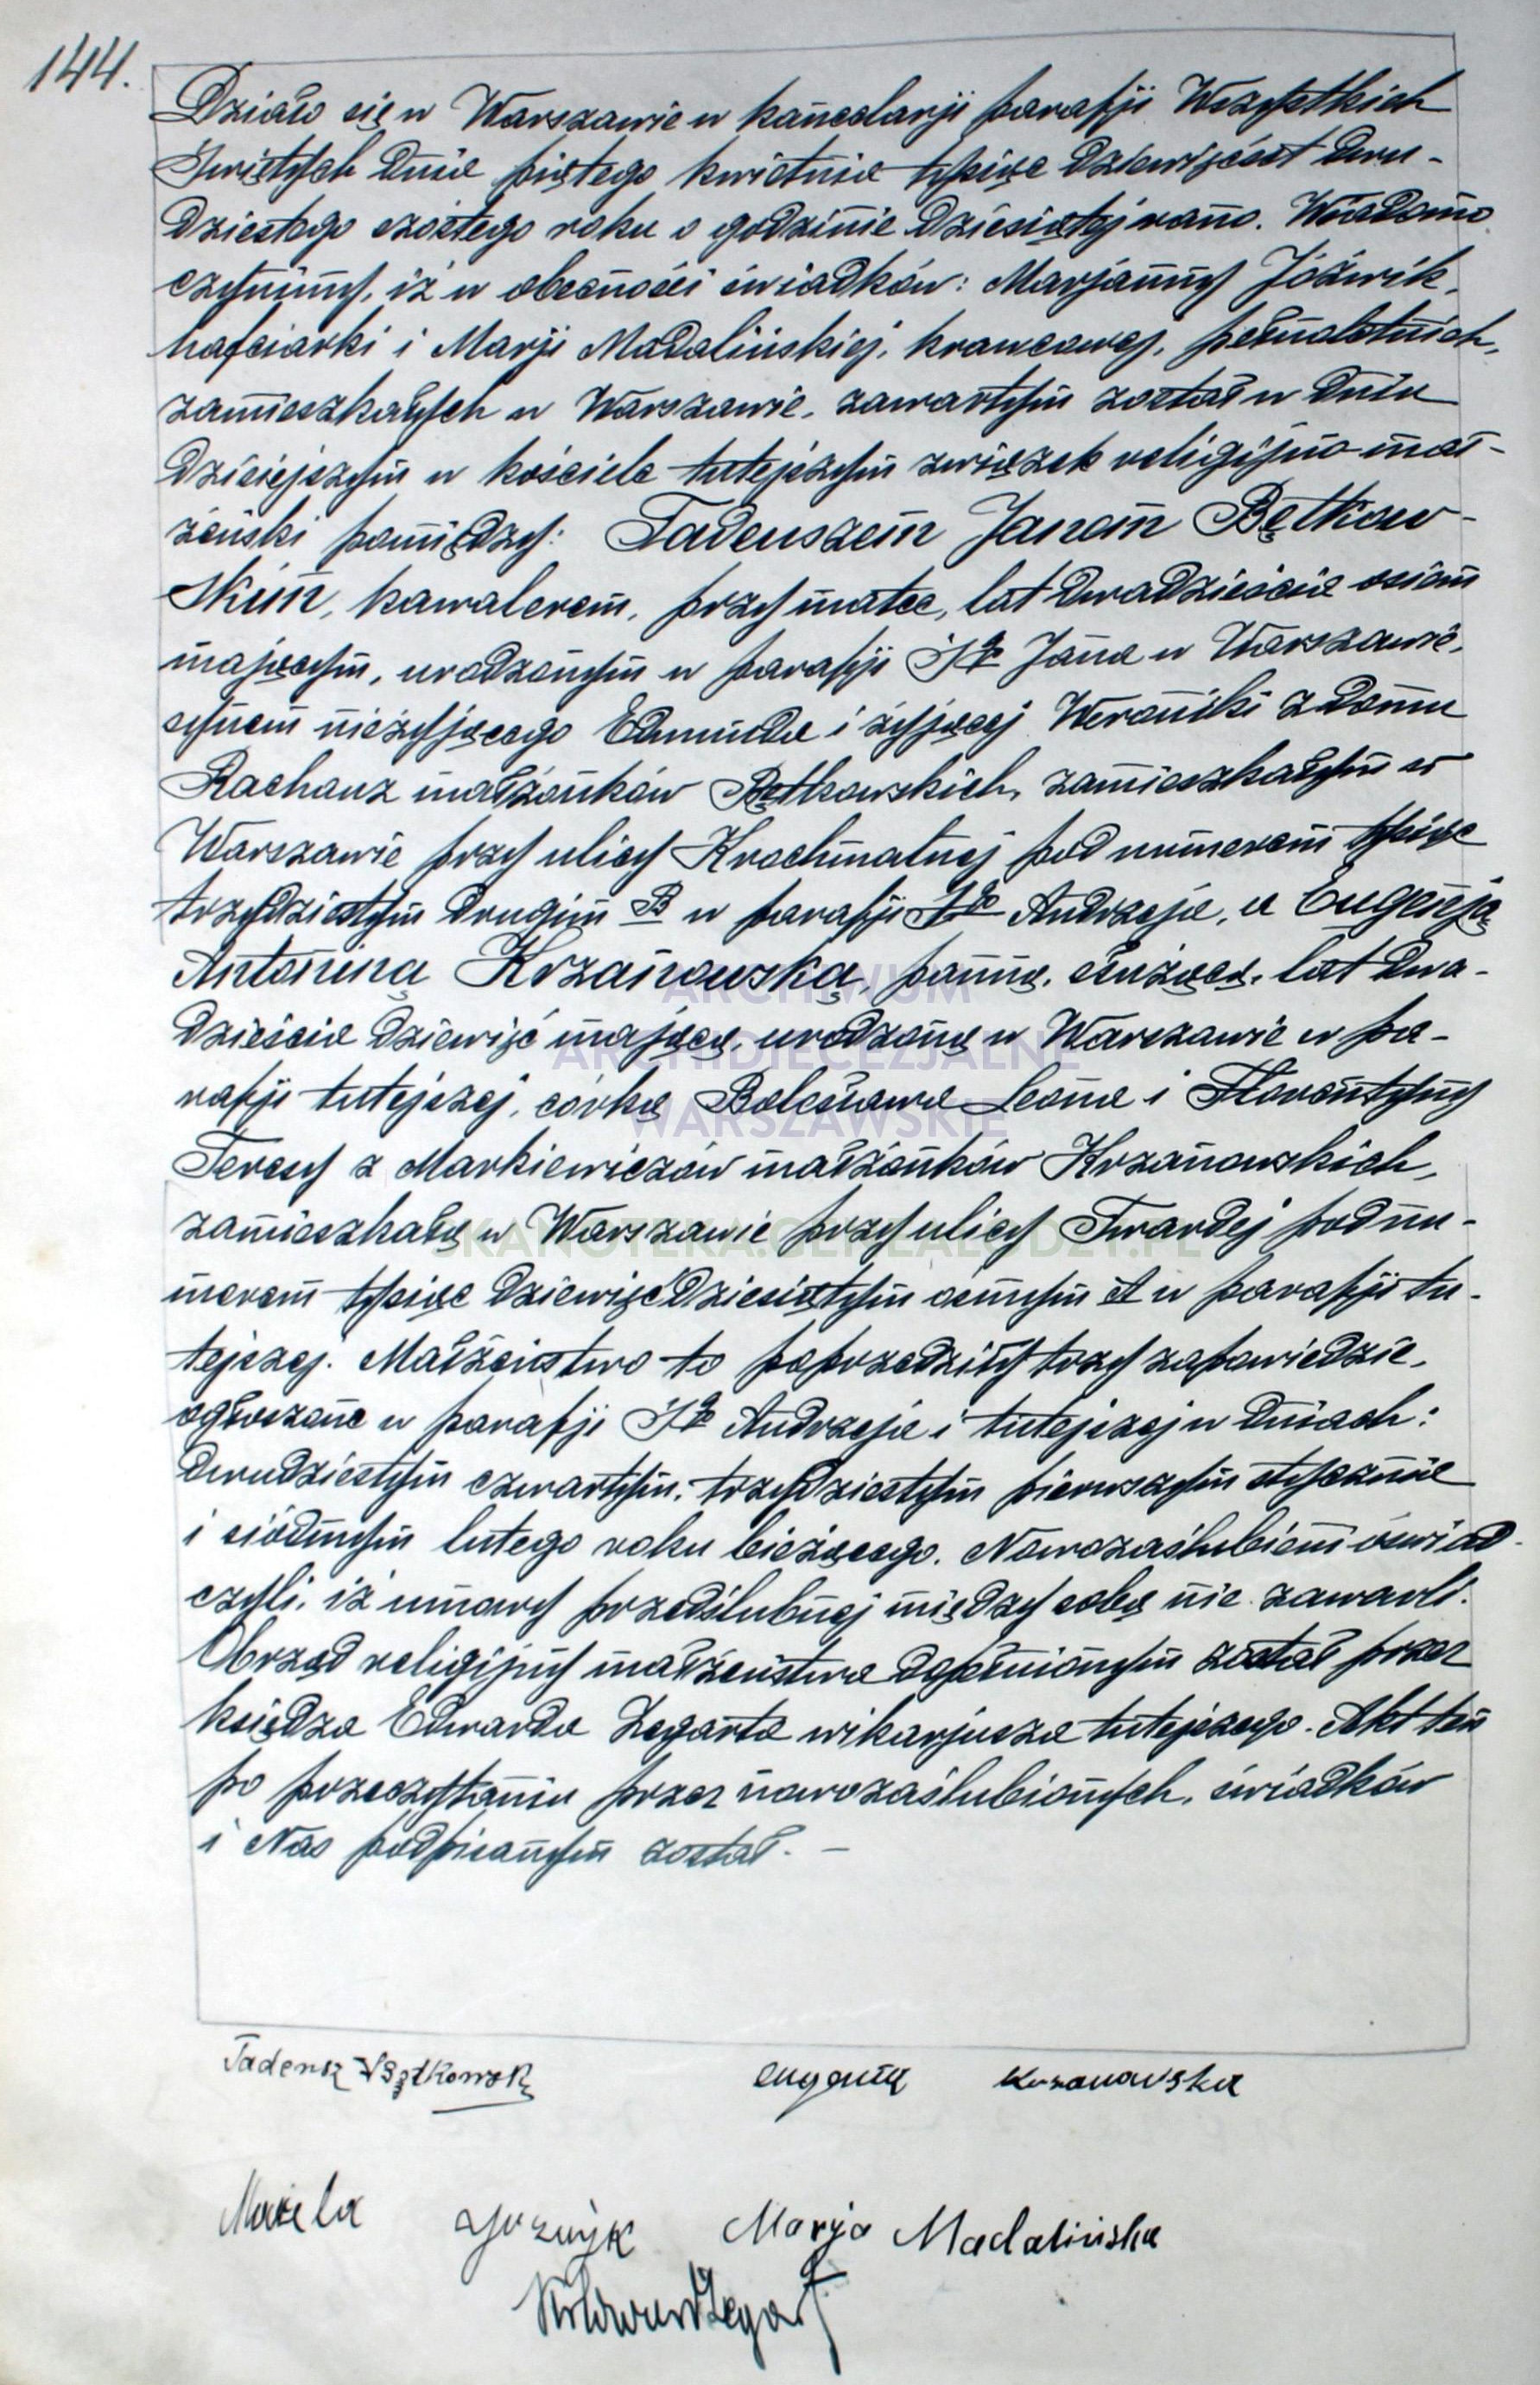 144.
Działo się w Warszawie w kancelarji parafji Wszystkich
Świętych dnia piątego kwietnia tysiąc dziewięćset dwu-
dziestego szóstego roku o godzinie dziesiątej rano. Wiadomo
czynimy, iż w obecności świadków: Marjanny Jóźwik,
hafciarki i Marji Madalińskiej, krawcowej, pełnoletnich,
zamieszkałych w Warszawie, zawartym został w dniu
dzisiejszym w kościele tutejszym związek religijno-mał-
żeński pomiędzy: Tadeuszem Janem Bętkow-
skim, kawalerem, przy matce, lat dwadzieścia osiem
mającym, urodzonym w parafji Śgo Jana w Warszawie,
synem nieżyjącego Edmunda i żyjącej Weroniki z domu
Rachauz małżonków Bętkowskich, zamieszkałym w
Warszawie przy ulicy Krochmalnej pod numerem tysiąc
trzydziestym drugim B w parafji Śgo Andrzeja, a Eugenją
Antoniną Krzanowską, panną, służącą, lat dwa-
dzieścia dziewięć mającą, urodzoną w Warszawie w pa-
rafji tutejszej, córką Bolesława Leona i Florentyny
Teresy z Markiewiczów małżonków Krzanowskich,
zamieszkałą w Warszawie przy ulicy Twardej pod nu-
merem tysiąc dziewięćdziesiątym ósmym A w parafji tu-
tejszej. Małżeństwo to poprzedziły trzy zapowiedzie,
ogłoszone w parafji Śgo Andrzeja i tutejszej w dniach:
dwudziestym czwartym, trzydziestym pierwszym stycznia
i siódmym lutego roku bieżącego. Nowozaślubieni oświad-
czyli, iż umowy przedślubnej między sobą nie zawarli.
Obrząd religijny małżeństwa dopełnionym został przez
księdza Edwarda Zegarta wikarjusza tutejszego. Akt ten
po przeczytaniu przez nowozaślubionych, świadków
i Nas podpisanym został. —
ARCHIWUM
ARCHIDIECEZJALNE
WARSZAWSKIE
SKANOTEKA.GENEALODZY.PL
Tadeusz Bętkowski Eugenia Krzanowska
Jozwik Marja Madalińska